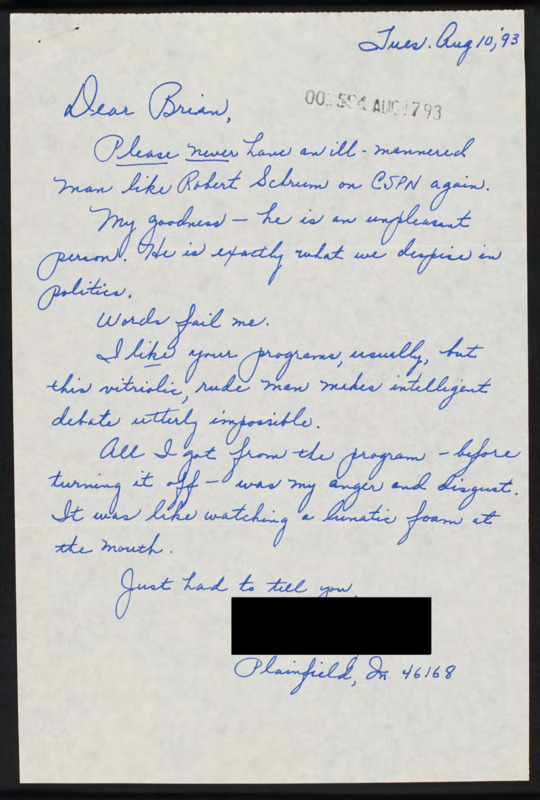 Tues. Aug 10, '93
Dear Brian,
AUG 17 93
Please never have an ill-mannered
man like Robert Schrum on CSPN again.
My goodness – he is an unpleasant
person. He is exactly what we despise in
politics.
Words fail me.
I like your programs, usually, but
this vitriolic, rude man makes intelligent
debate utterly impossible.
All I got from the program – before
turning it off – was my anger and disgust.
It was like watching a lunatic foam at
the mouth.
Just had to tell you.
Plainfield, In 46168